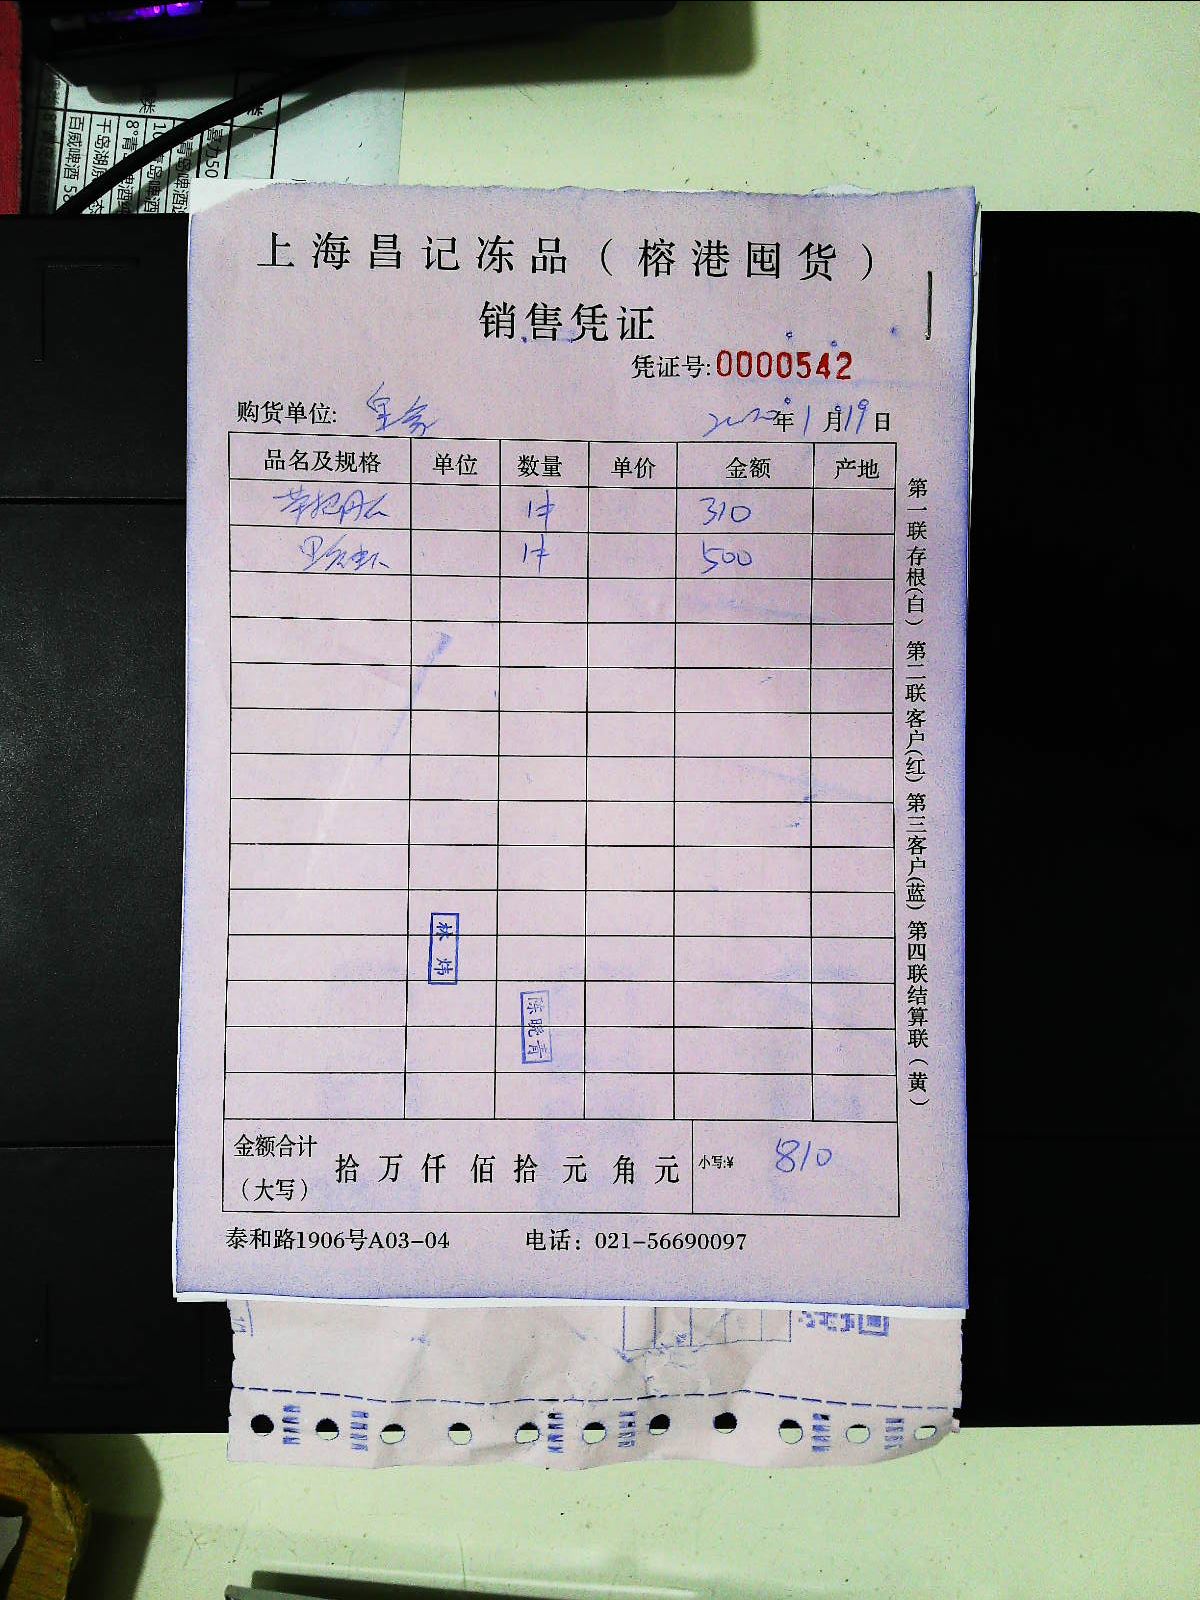 上海昌记冻品（榕港囤货）
销售凭证
凭证号:0000542
购货单位: 皇家
2020年1月19日
品名及规格 单位 数量 单价 金额 产地
1件 310
1件 500
林炜
陈晓青
金额合计（大写） 拾 万 仟 佰 拾 元 角 元 小写:¥ 810
泰和路1906号A03-04 电话：021-56690097
第一联存根(白) 第二联客户(红) 第三客户(蓝) 第四联结算联(黄)
千岛湖
百威啤酒 58